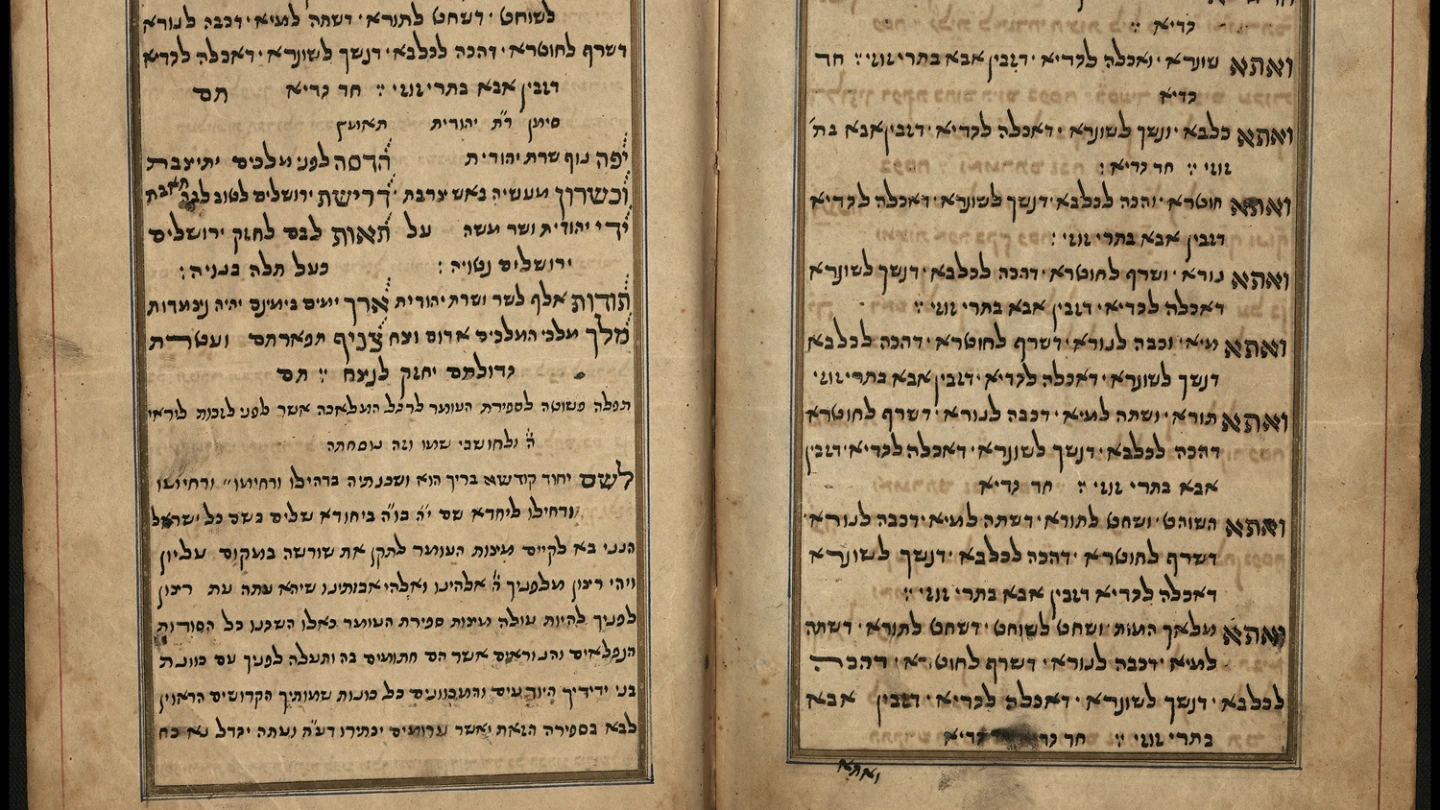 כדיא ׃
ואתא שונרא · ואכלה לגדיא · דזבין אבא בתרי זוזי ׃ חד
גדיא
ואתא כלבא · ונשך לשונרא · דאכלה לגדיא · דזבין אבא בת'
זוזי ׃ חד גדיא ׃
ואתא חוטרא · והכה לכלבא · דנשך לשונרא · דאכלה לגדיא
דזבין אבא בתרי זוזי ׃
ואתא נורא · ושרף לחוטרא · דהכה לכלבא · דנשך לשונרא
דאכלה לגדיא · דזבין אבא בתרי זוזי ׃
ואתא מיא · וכבה לנורא · דשרף לחוטרא · דהכה לכלבא
דנשך לשונרא · דאכלה לגדיא · דזבין אבא בתרי זוזי
ואתא תורא · ושתה למיא · דכבה לנורא · דשרף לחוטרא
דהכה לכלבא · דנשך לשונרא · דאכלה לגדיא · דזבין
אבא בתרי זוזי ׃ חד גדיא
ואתא השוהט · ושחט לתורא · דשתה למיא · דכבה לנורא
דשרף לחוטרא · דהכה לכלבא · דנשך לשונרא
דאכלה לגדיא דזבין אבא בתרי זוזי ׃
ואתא מלאך המות · ושחט לשוחט · דשחט לתורא · דשתה
למיא · דכבה לנורא · דשרף לחוטרא · דהכה
לכלבא · דנשך לשונרא · דאכלה לגדיא · דזבין אבא
בתרי זוזי ׃ חד גדיא
ואתא
לשוחט · דשחט לתורא · דשתה למיא · דכבה לנורא
דשרף לחוטרא · דהכה לכלבא · דנשך לשונרא · דאכלה לגדיא
דזבין אבא בתרי זוזי ׃ חד גדיא תם
סימן ר״ת יהודית
יפה נוף שרת יהודית הדסה לפני מלכים יתיצבת
וכשרון מעשיה באש צרבת · דרישת ירושלים לטוב
ידי יהודית ושר משה על תאות לבם לחזק ירושלים
ירושלים נטויה ׃ כעל תלה בנויה ׃
תודות אלף לשר ושרת יהודית ארך ימים בימינם יהיה
מלך מלכי המלכים אדום וצח צניף תפארתם ועטרת
גדולתם יחזק לנצח ׃ תם
תפלה פשוטה לספירת העומר לרגל המלאכה אשר לפני לזכות ליראי
ה' ולחושבי שמו וזה נוסחתה
לשם יחוד קודשא בריך הוא ושכנתיה בדהילו ורחימו״ ורחימו
ודחילו ליחדא שם י״ה בו״ה ביחודא שלים בשם כל ישראל
הנני בא לקיים מצות העומר לתקן את שורשה במקום עליון
ויהי רצון מלפניך ה' אלהינו ואלהי אבותינו שיהא עתה עת רצון
לפניך להיות עולה מצות ספירת העומר כאלו השגנו כל הסודות
הנפלאים והנוראים אשר הם חתומים בה ותעלה לפניך עם כוונת
בני ידידיך היודעים והמכוונים כל כונות שמותיך הקדושים הראוין
לבא בספירה הזאת ואשר ערומים יכתירו דע״ה ועתה יגדל נא כח